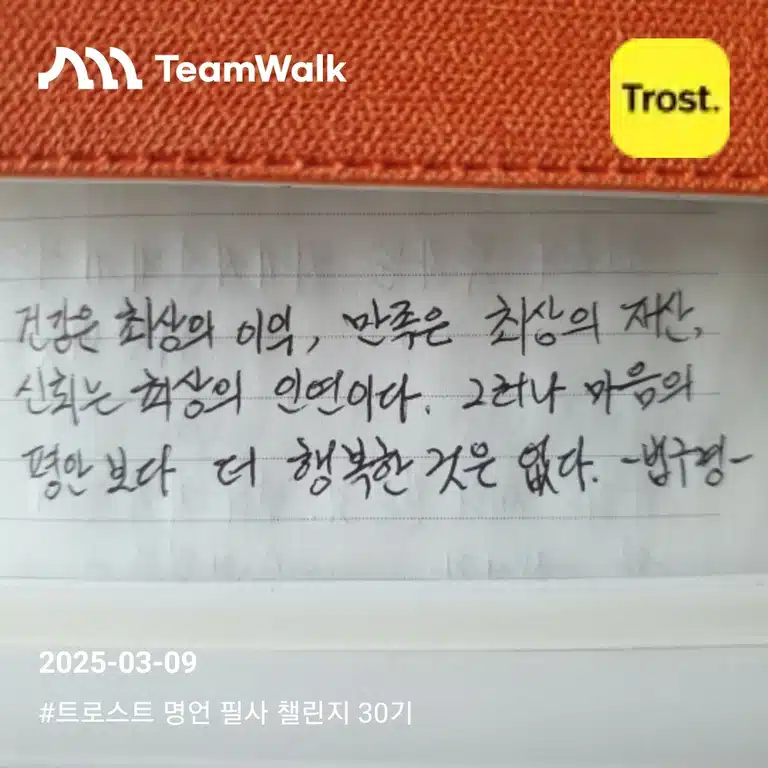 TeamWalk
Trost.
건강은 최상의 이익, 만족은 최상의 재산,
신뢰는 최상의 인연이다. 그러나 마음의
평안보다 더 행복한 것은 없다. -법구경-
2025-03-09
#트로스트 명언 필사 챌린지 30기